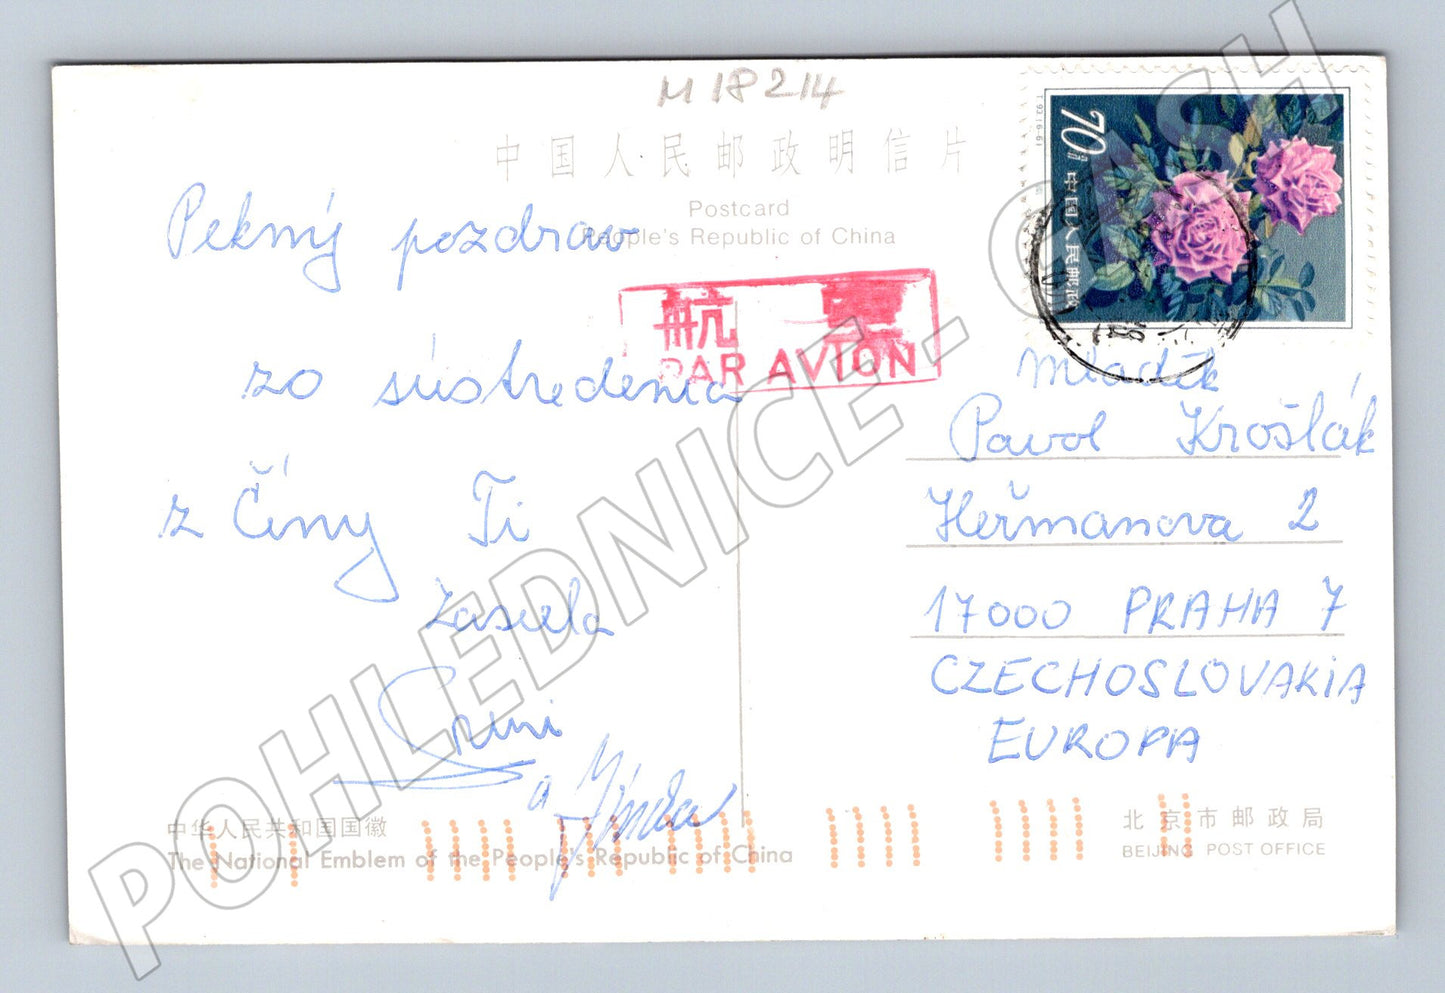 M 18214
中国人民邮政明信片
Postcard
People's Republic of China
T.93.(6-6)
70分
中国人民邮政
航
PAR AVION
Pekný pozdrav
zo sústredenia
z Číny Ti
zasiela
a Jinda
Mladík
Pavol Krošlák
Heřmanova 2
17000 PRAHA 7
CZECHOSLOVAKIA
EUROPA
中华人民共和国国徽
The National Emblem of the People's Republic of China
北京市邮政局
BEIJING POST OFFICE
POHLEDNICE - CASH